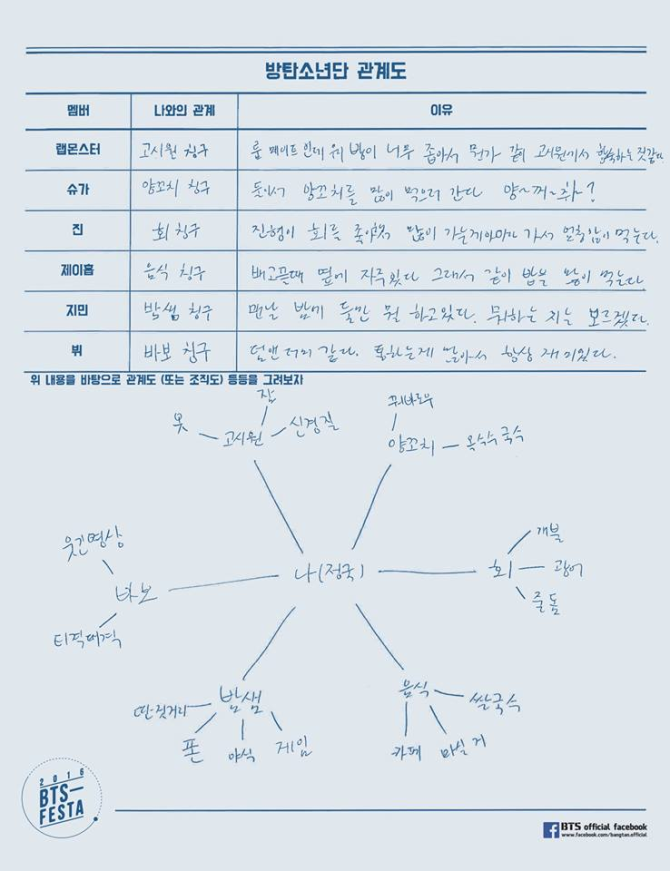 방탄소년단 관계도
멤버 나와의 관계 이유
랩몬스터 고시원 친구 룸메이트인데 위 방이 너무 좁아서 뭔가 같이 고시원에서 하는 것같다
슈가 양꼬치 친구 둘이서 양꼬치를 많이 먹으러 간다 양~꺼~취~?
진 회 친구 진형이 회를 많이 가서 많이 먹는다.
제이홉 음식 친구 배고플때 옆에 자주있다 그래서 같이 밥을 많이 먹는다.
지민 밤샘 친구 맨날 밤에 둘만 뭘 하고있다. 뭐하는 지는 모르겠다.
뷔 바보 친구 덤앤더머 같다. 통하는게 많아서 항상 재미있다.
위 내용을 바탕으로 관계도 (또는 조직도) 등등을 그려보자
잠 꿔바로우
옷 고시원 신경질 양꼬치 옥수수국수
웃긴영상 개불
바보 나(정국) 회 광어
티격태격 줄돔
딴짓거리 밤샘 음식 쌀국수
폰 야식 게임 카페 마실거
2016
BTS
FESTA
BTS official facebook
www.facebook.com/bangtan.official